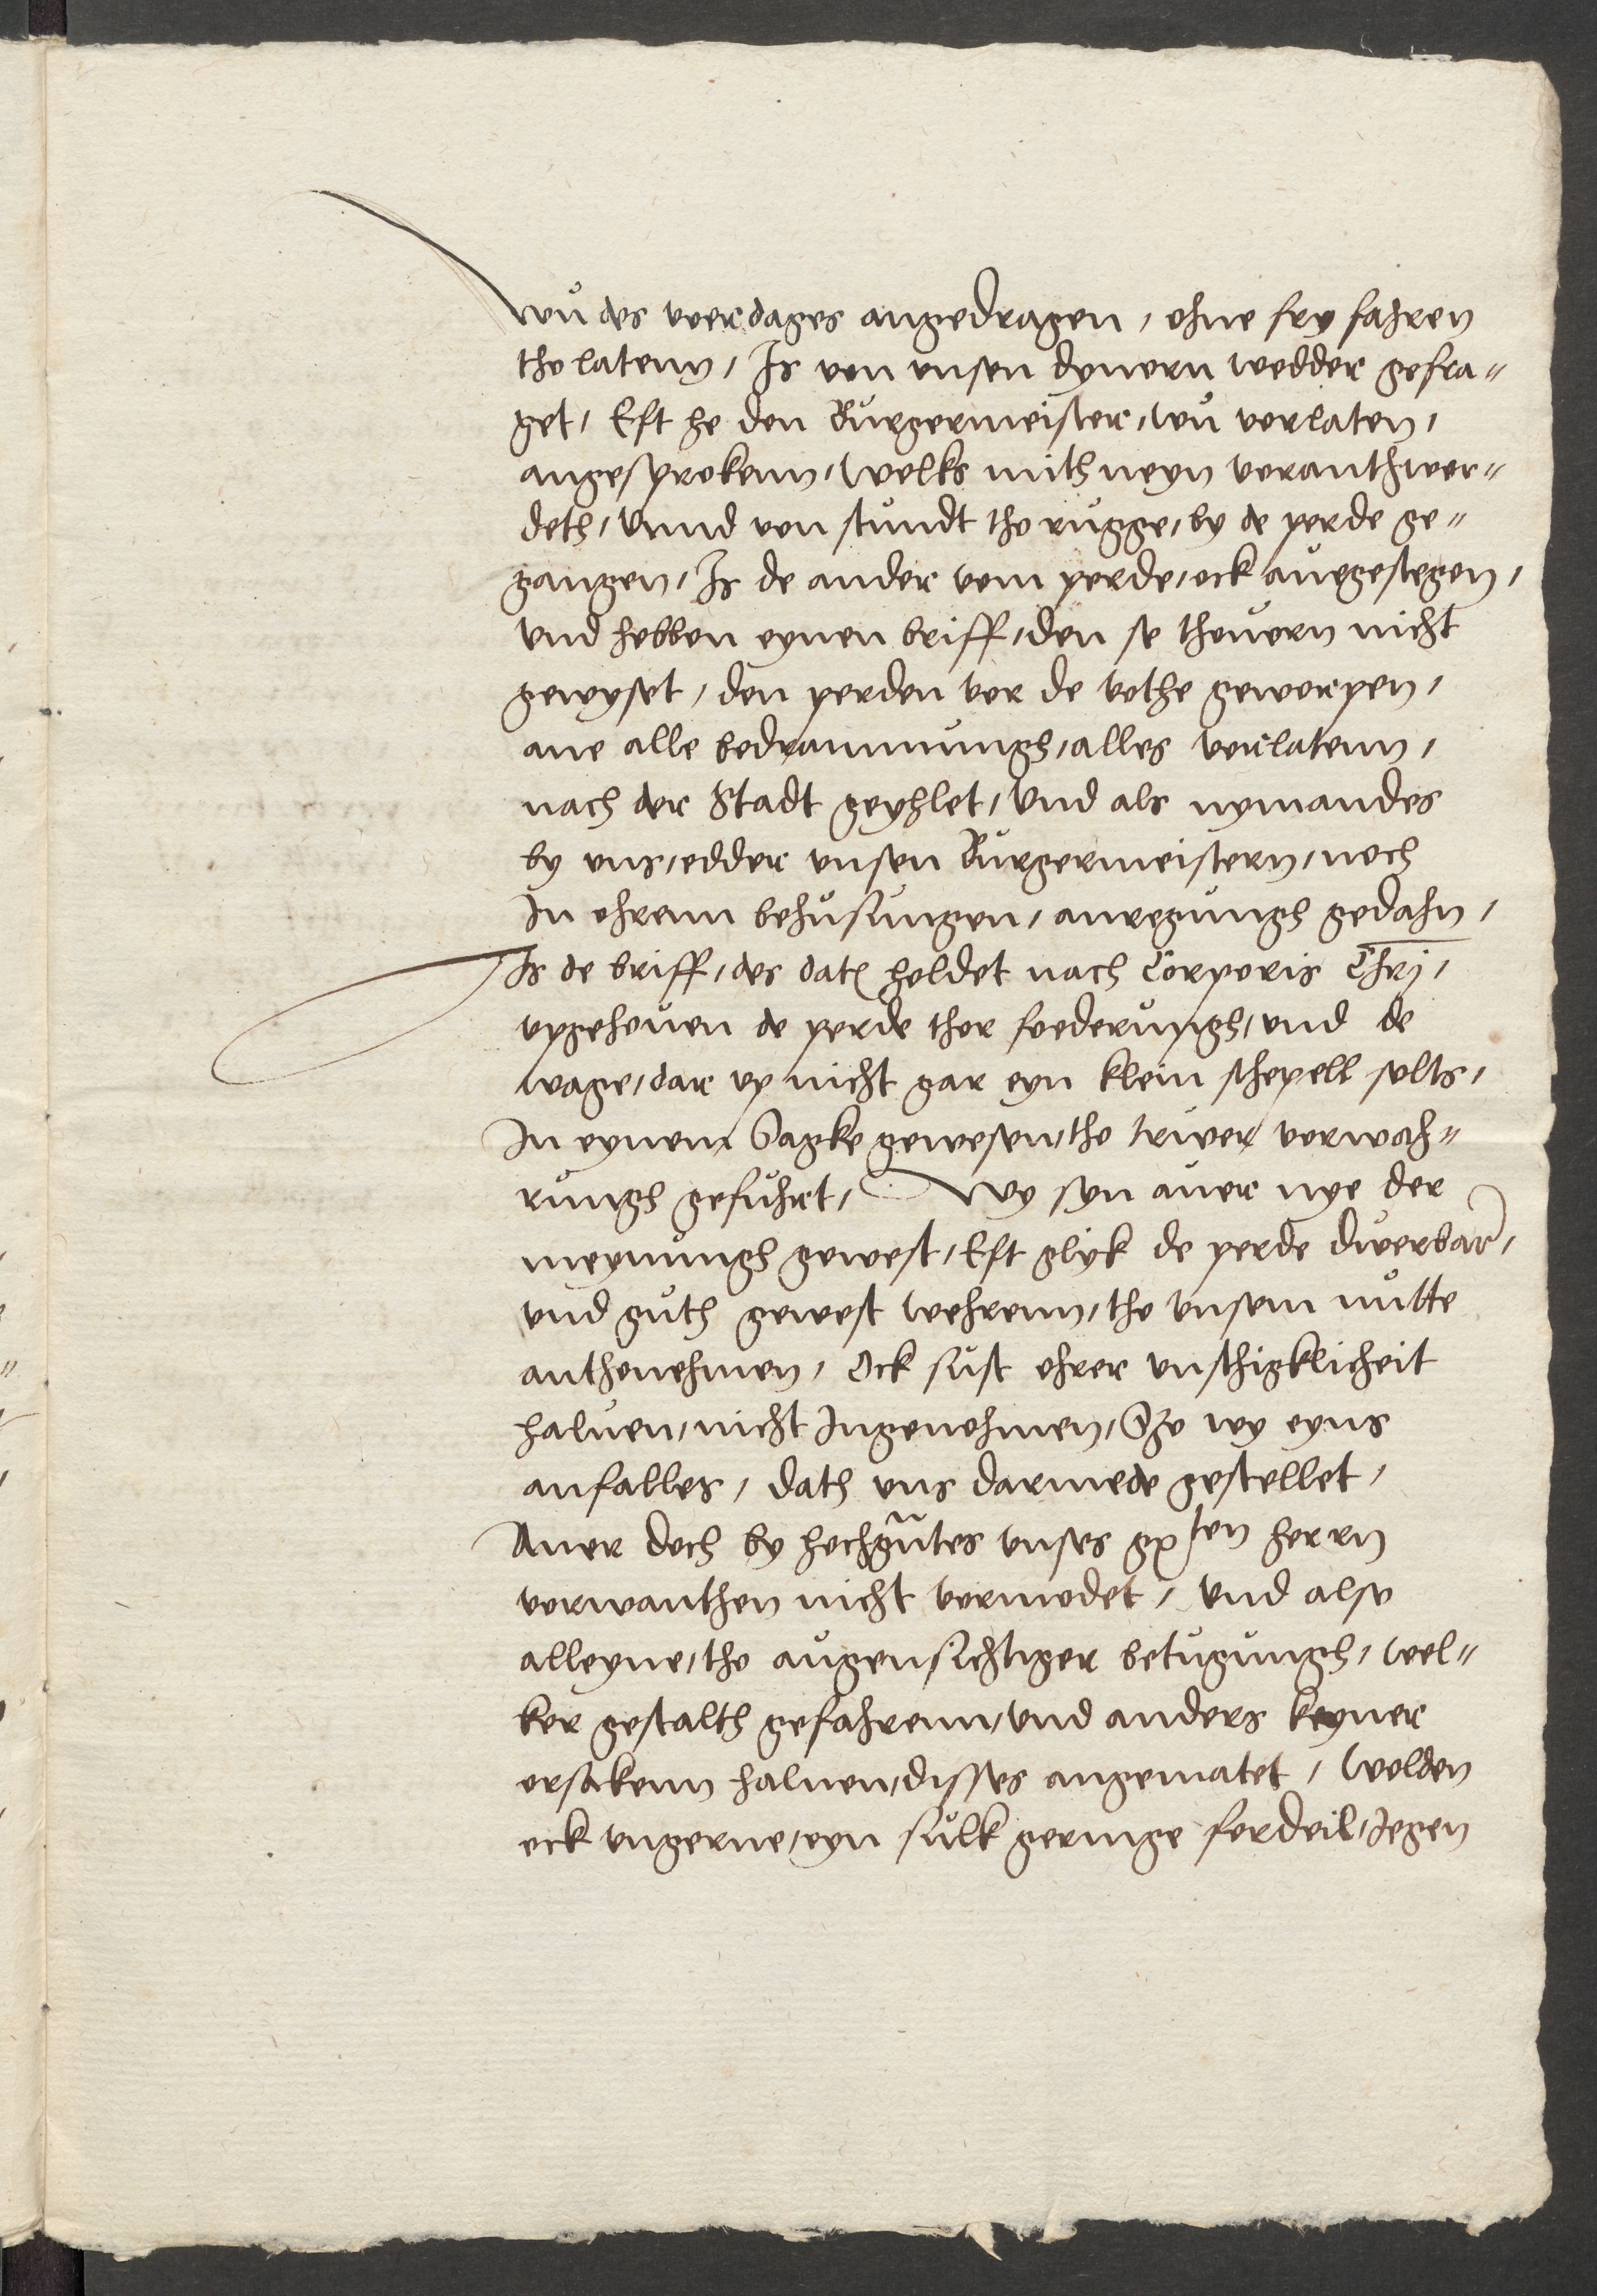 wu des voerdages angedragen, ohne fry fahren
tho latenn, Is von unsen dynern wedder gefra„
get, Eft he den Burgermeister, wu verlaten,
angesprokenn, welks mith neyn veranthwer„
deth, Unnd von stundt tho rugge, by de perde ge„
gangen, Is de ander vom perde, ock auegestegen,
und hebben eynen briff, den se thouern nicht
gewyset, den perden vor de vothe geworpen,
ane alle bedrannungh, alles verlatenn,
nach der Stadt geyhlet, und als nymandes
by uns, edder unsen Burgermeistern, noch
In ohrenn behusungen, anregungh gedahn,
Is de briff, des dat holdet nach Corporis Chri,
upgehouen de perde thor foederungh, und de
wage, dar up nicht gar eyn klein schepell solts,
In eynem Sagke gewesen, tho truver verwah„
rungh gefuhrt, Wy syn auer nye der
meynungh gewest, Eft glyk de perde duerbar,
und guth gewest wehrenn, tho unsem nutte
anthonehmen, Ock sust ohrer unschigklicheit
haluen, nicht Ingenohmen, Szo wy eyns
anfalles, dath uns darmede gestellet,
Auer doch by hochgutes unses gsten herrn
verwanthen nicht vermodet, und also
alleyne, tho augensichtiger betugungh, wel„
ker gestalth gefahrenn, und anders keyner
orsakenn haluen, disses angematet, wolden
ock ungerne, eyn sulk geringe fordeil, Jegen